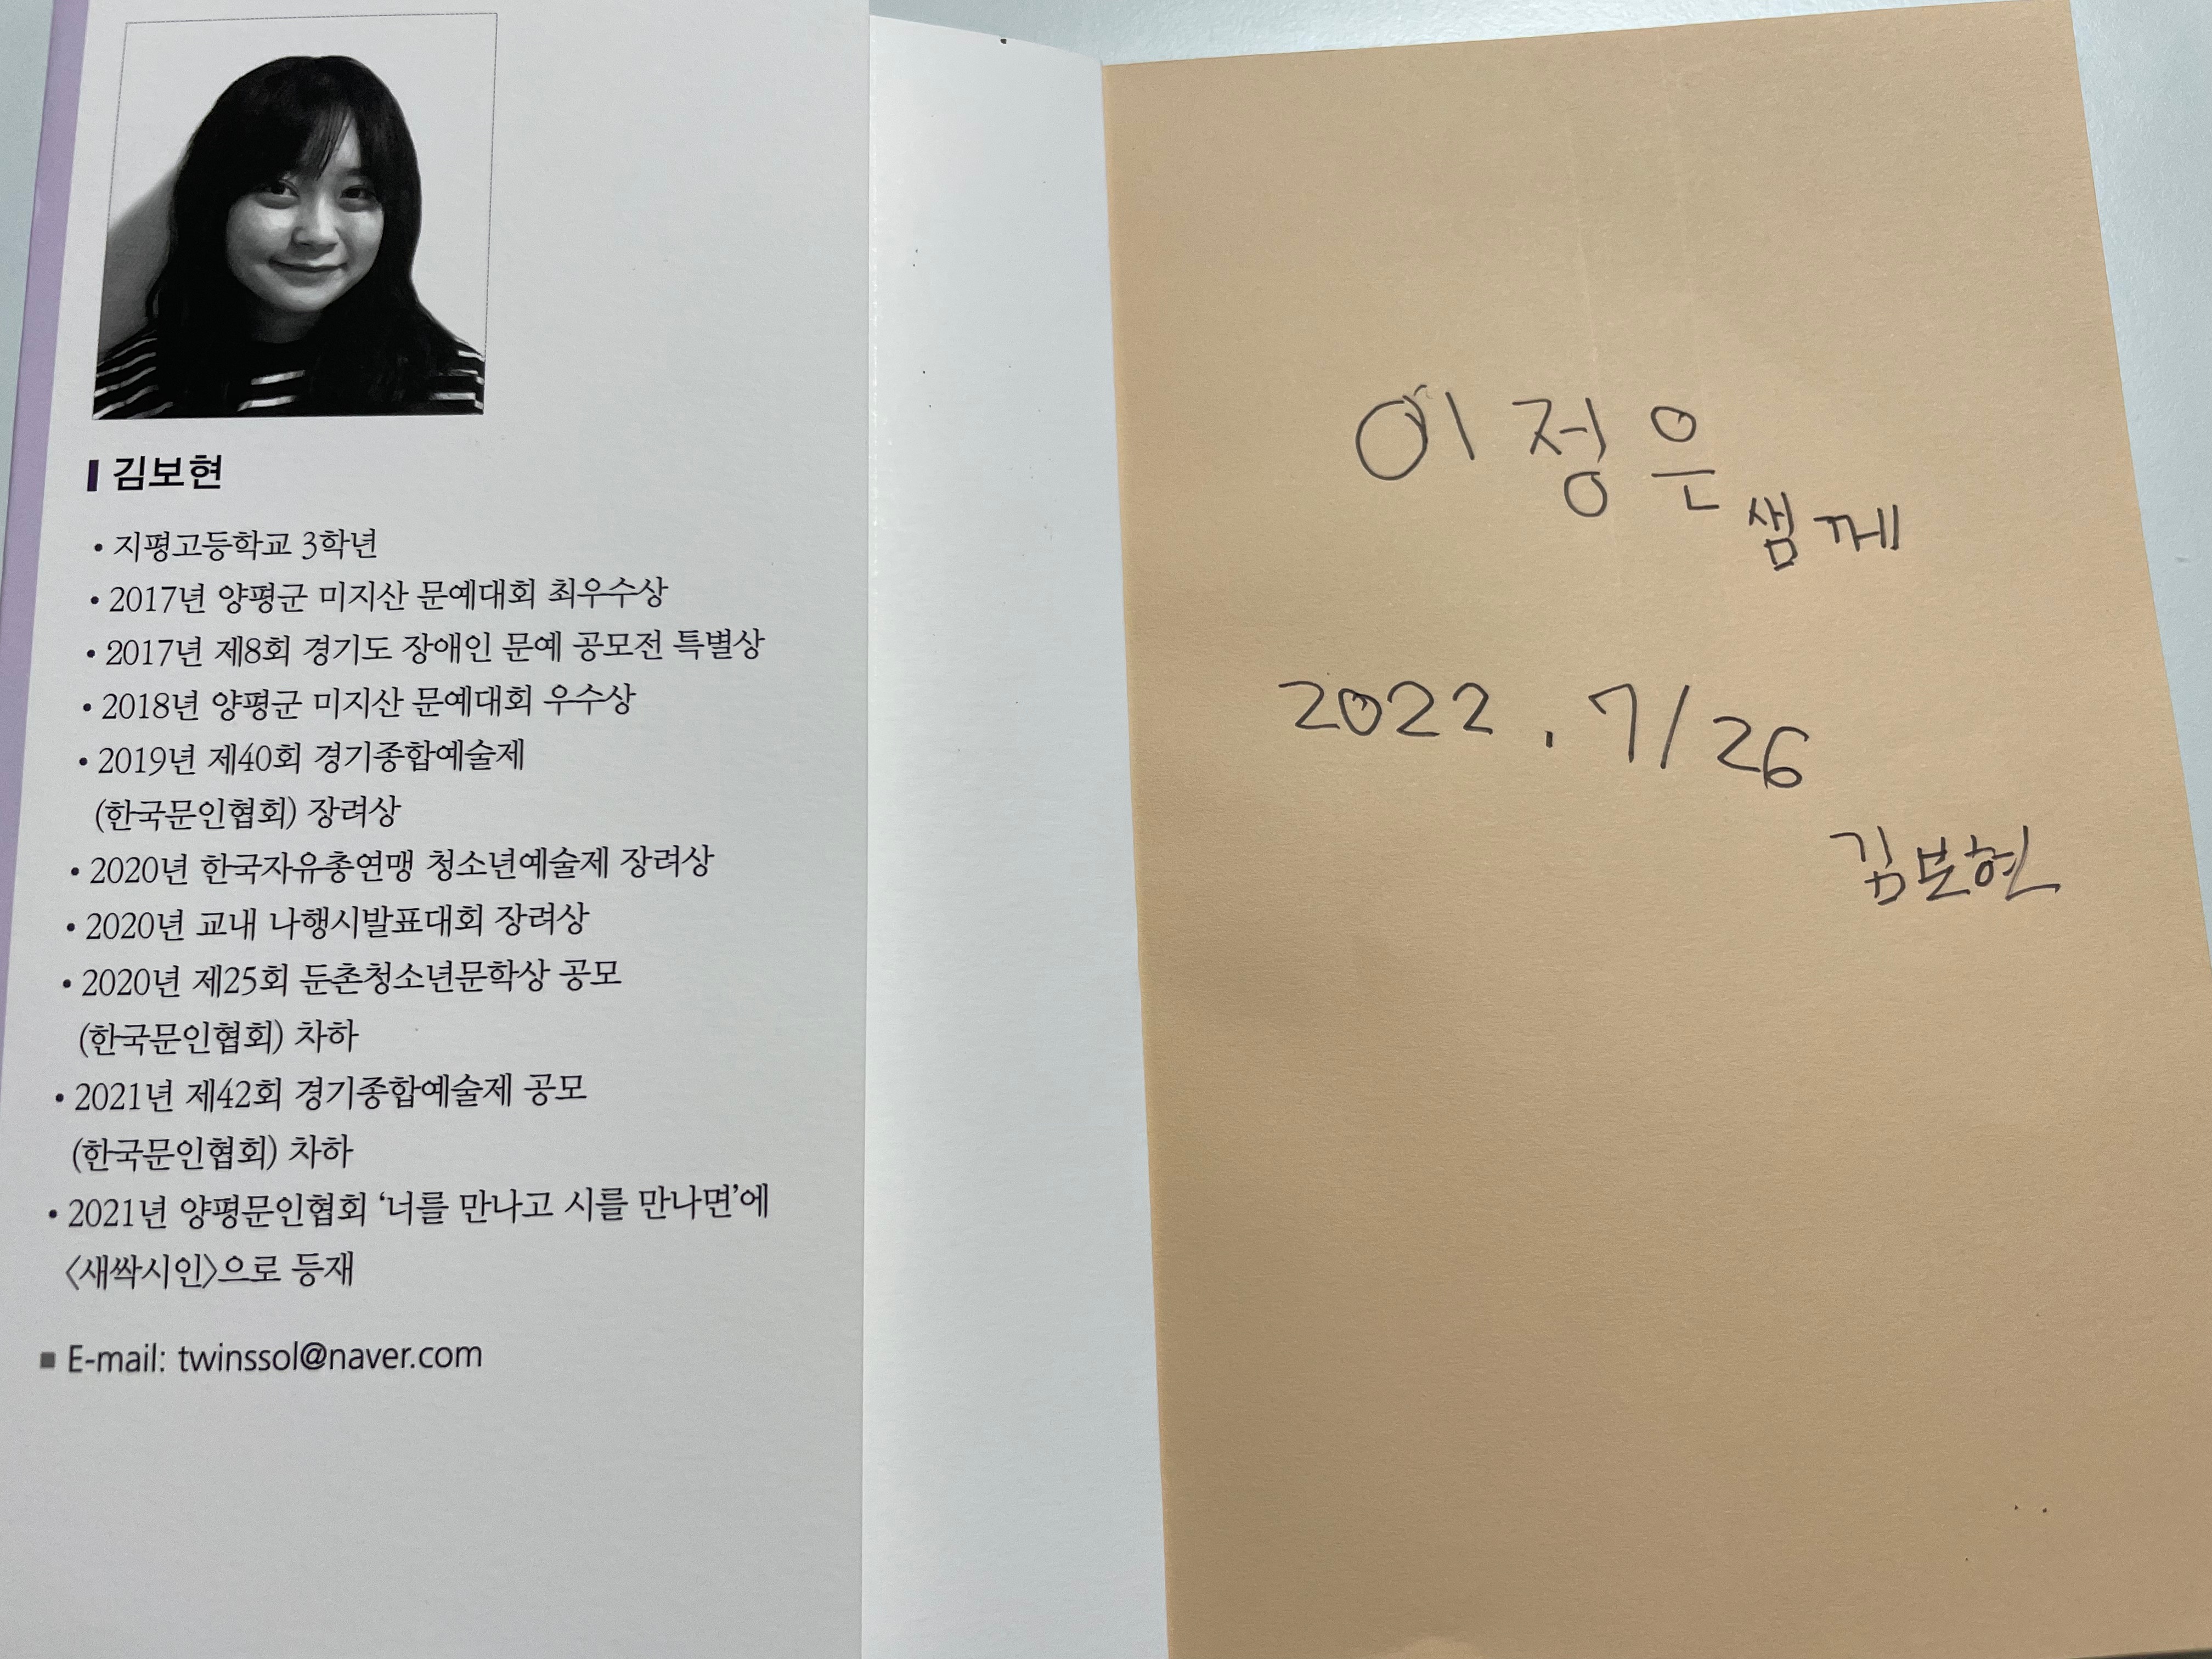 김보현
• 지평고등학교 3학년
• 2017년 양평군 미지산 문예대회 최우수상
• 2017년 제8회 경기도 장애인 문예 공모전 특별상
• 2018년 양평군 미지산 문예대회 우수상
• 2019년 제40회 경기종합예술제
(한국문인협회) 장려상
• 2020년 한국자유총연맹 청소년예술제 장려상
• 2020년 교내 나행시발표대회 장려상
• 2020년 제25회 둔촌청소년문학상 공모
(한국문인협회) 차하
• 2021년 제42회 경기종합예술제 공모
(한국문인협회) 차하
• 2021년 양평문인협회 ‘너를 만나고 시를 만나면’에
〈새싹시인〉으로 등재
■ E-mail: twinssol@naver.com
이정은
쌤께
2022. 7/26
김보현